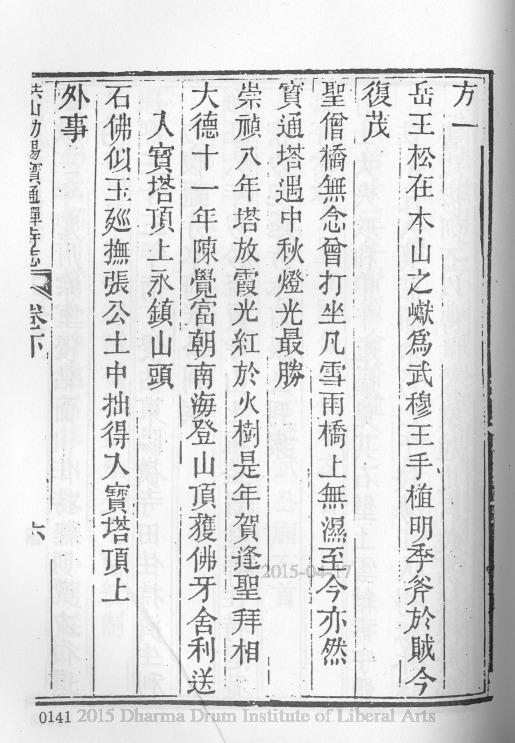 方一
岳王松在本山之巘為武穆王手植明季斧於賊今
復茂
聖僧橋無念曾打坐凡雪雨橋上無濕至今亦然
寶通塔遇中秋燈光最勝
崇禎八年塔放霞光紅於火樹是年賀逢聖拜相
大德十一年陳覺富朝南海登山頂獲佛牙舍利送
入寶塔頂上永鎮山頭
石佛似玉廵撫張公土中拙得入寶塔頂上
外事
洪山勅賜寶通禪寺志 卷下 六
2015-04-17
0141 2015 Dharma Drum Institute of Liberal Arts